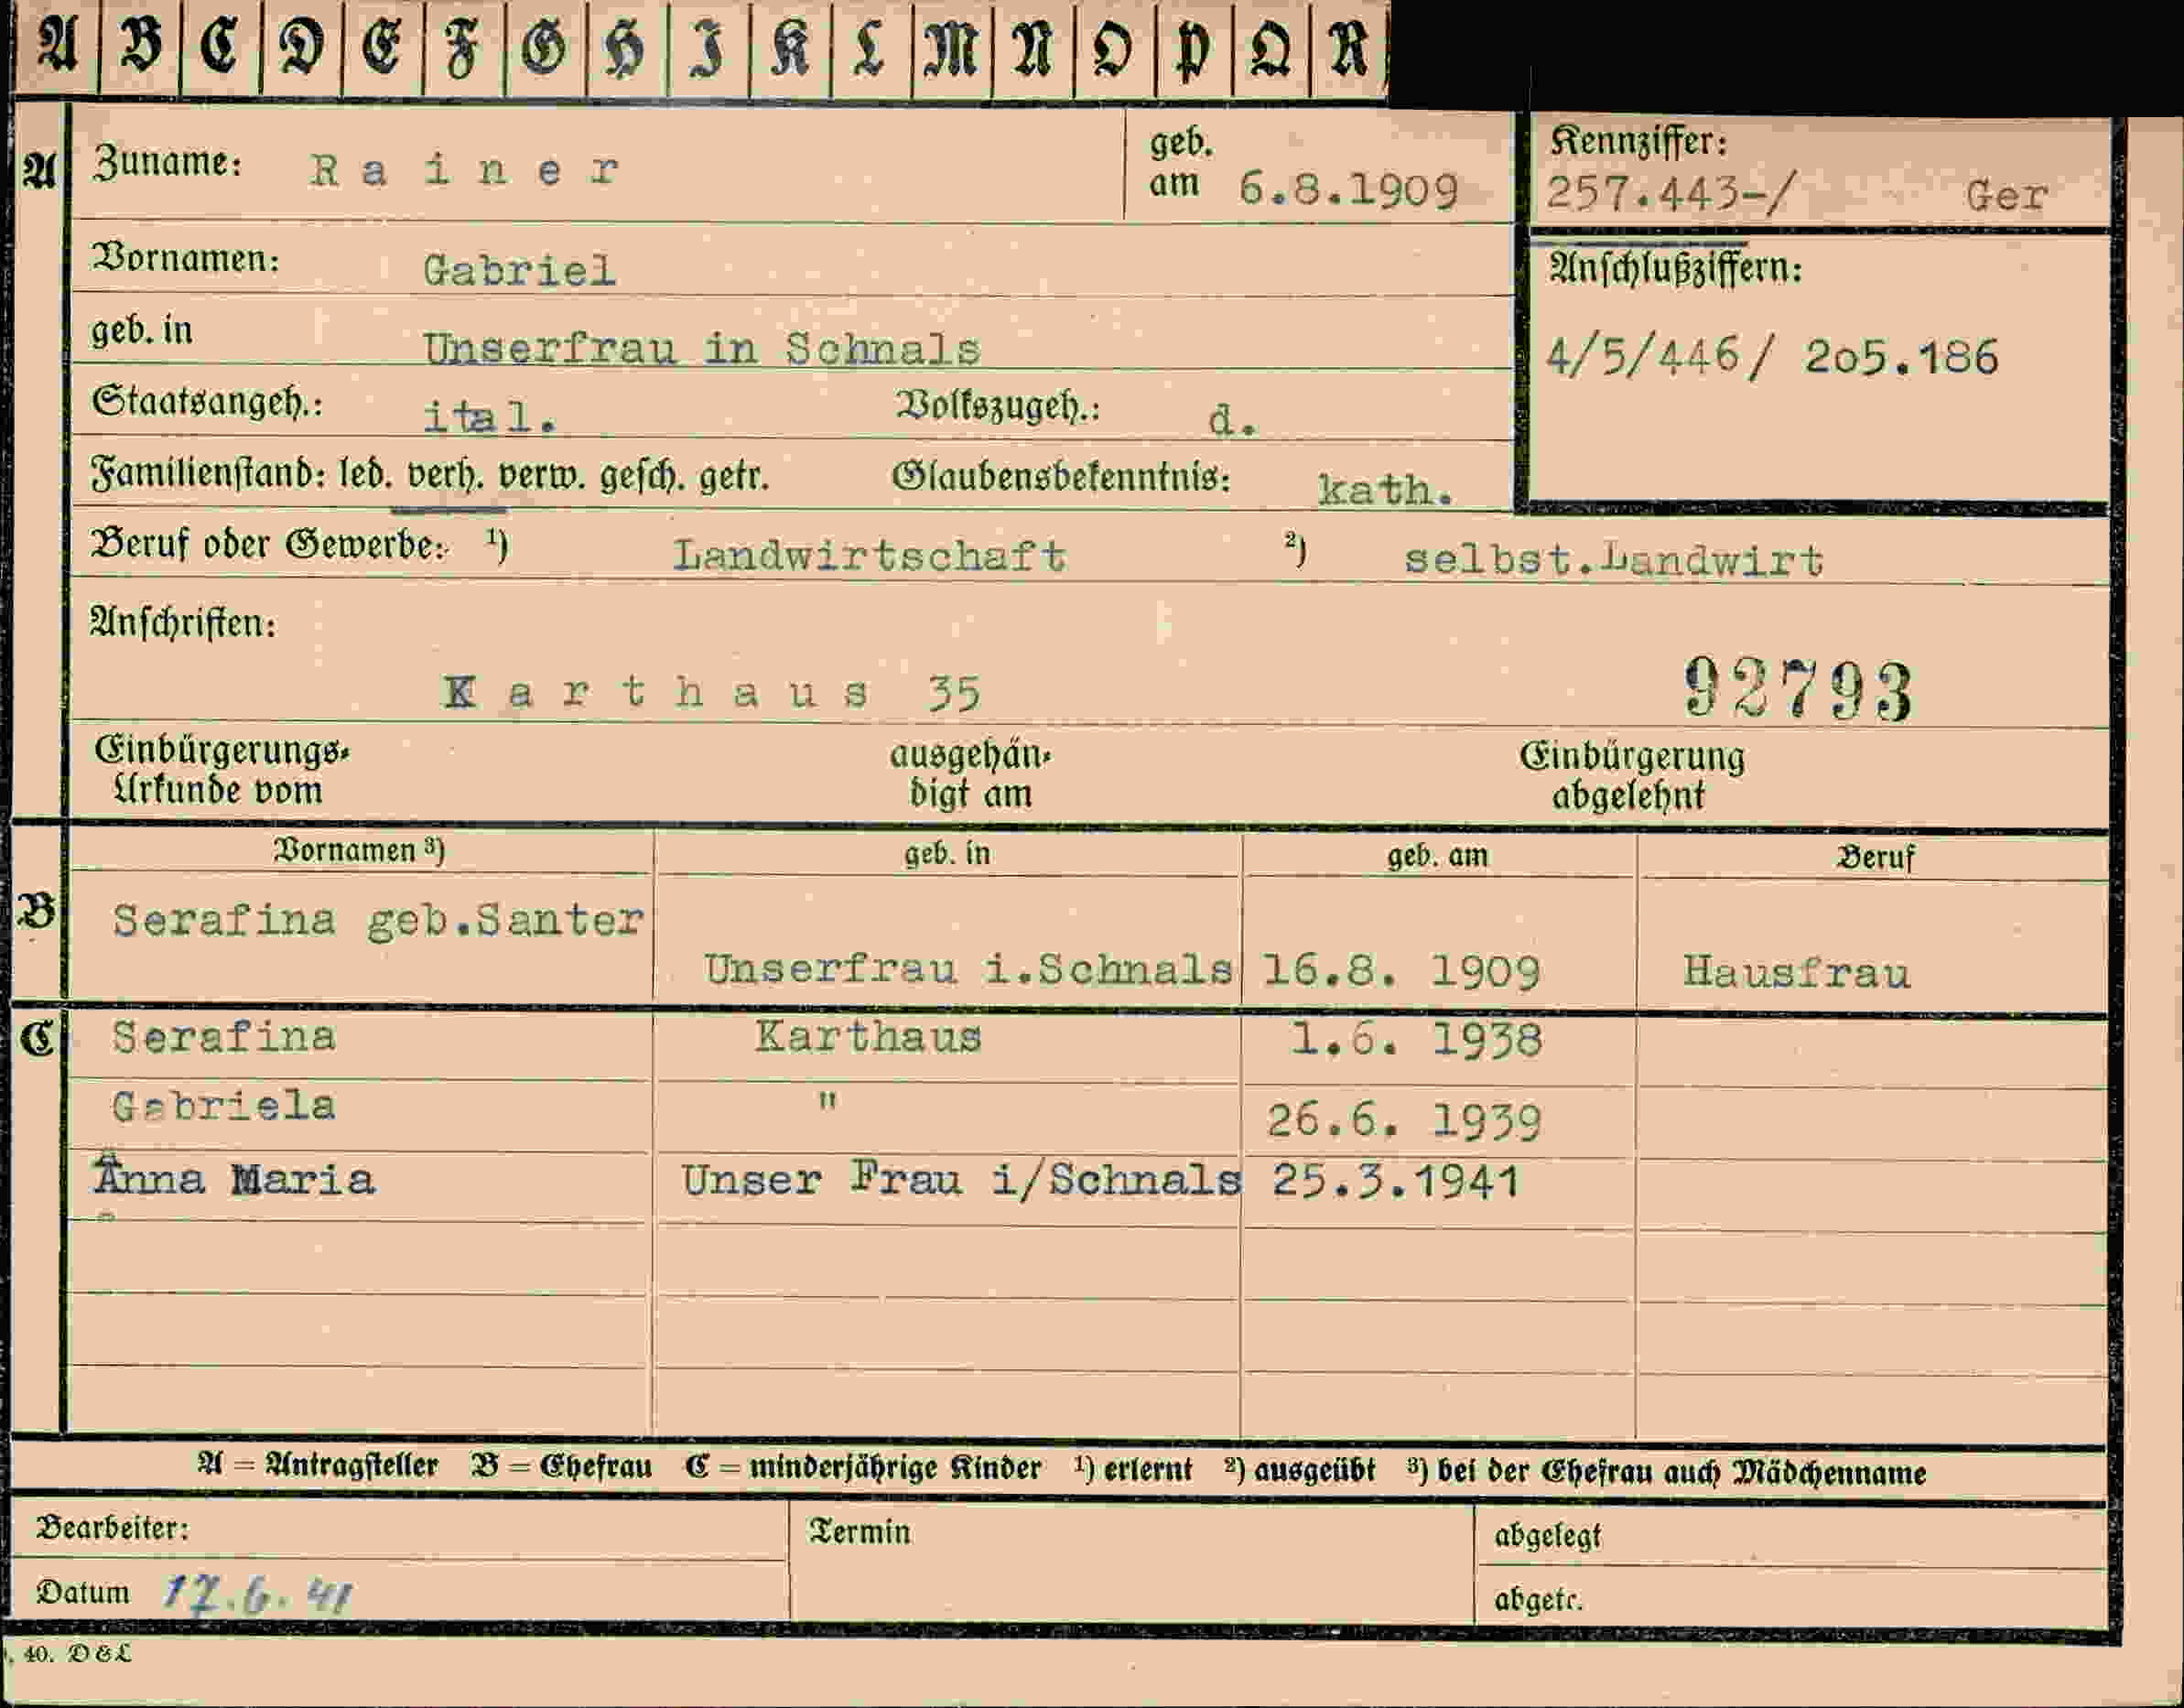 A B C D E F G H I K L M N O P Q R
A Zuname: Rainer geb. am 6.8.1909
Kennziffer:
257.443-/ Ger
Vornamen: Gabriel
Anschlußziffern:
geb. in Unserfrau in Schnals
4/5/446/ 205.186
Staatsangeh.: ital. Volkszugeh.: d.
Familienstand: led. verh. verw. gesch. getr. Glaubensbekenntnis: kath.
Beruf oder Gewerbe: 1) Landwirtschaft 2) selbst.Landwirt
Anschriften:
Karthaus 35
92793
Einbürgerungs-
Urkunde vom
ausgehän-
digt am
Einbürgerung
abgelehnt
Vornamen 3) geb. in geb. am Beruf
B Serafina geb.Santer
Unserfrau i.Schnals 16.8. 1909 Hausfrau
C Serafina Karthaus 1.6. 1938
Gabriela " 26.6. 1939
Anna Maria Unser Frau i/Schnals 25.3.1941
A = Antragsteller B = Ehefrau C = minderjährige Kinder 1) erlernt 2) ausgeübt 3) bei der Ehefrau auch Mädchenname
Bearbeiter: Termin abgelegt
Datum 17.6.41 abgetr.
40. D&L